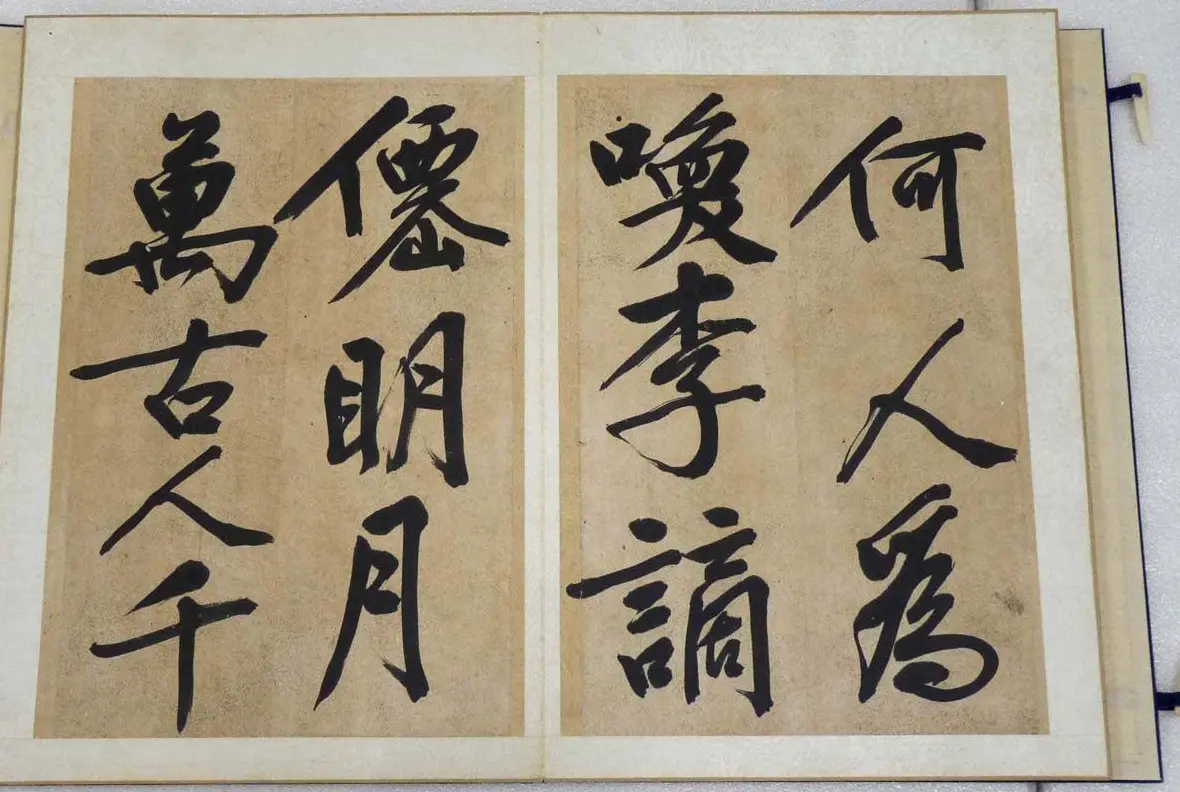 何人爲
喚李謫
僊明月
萬古人千